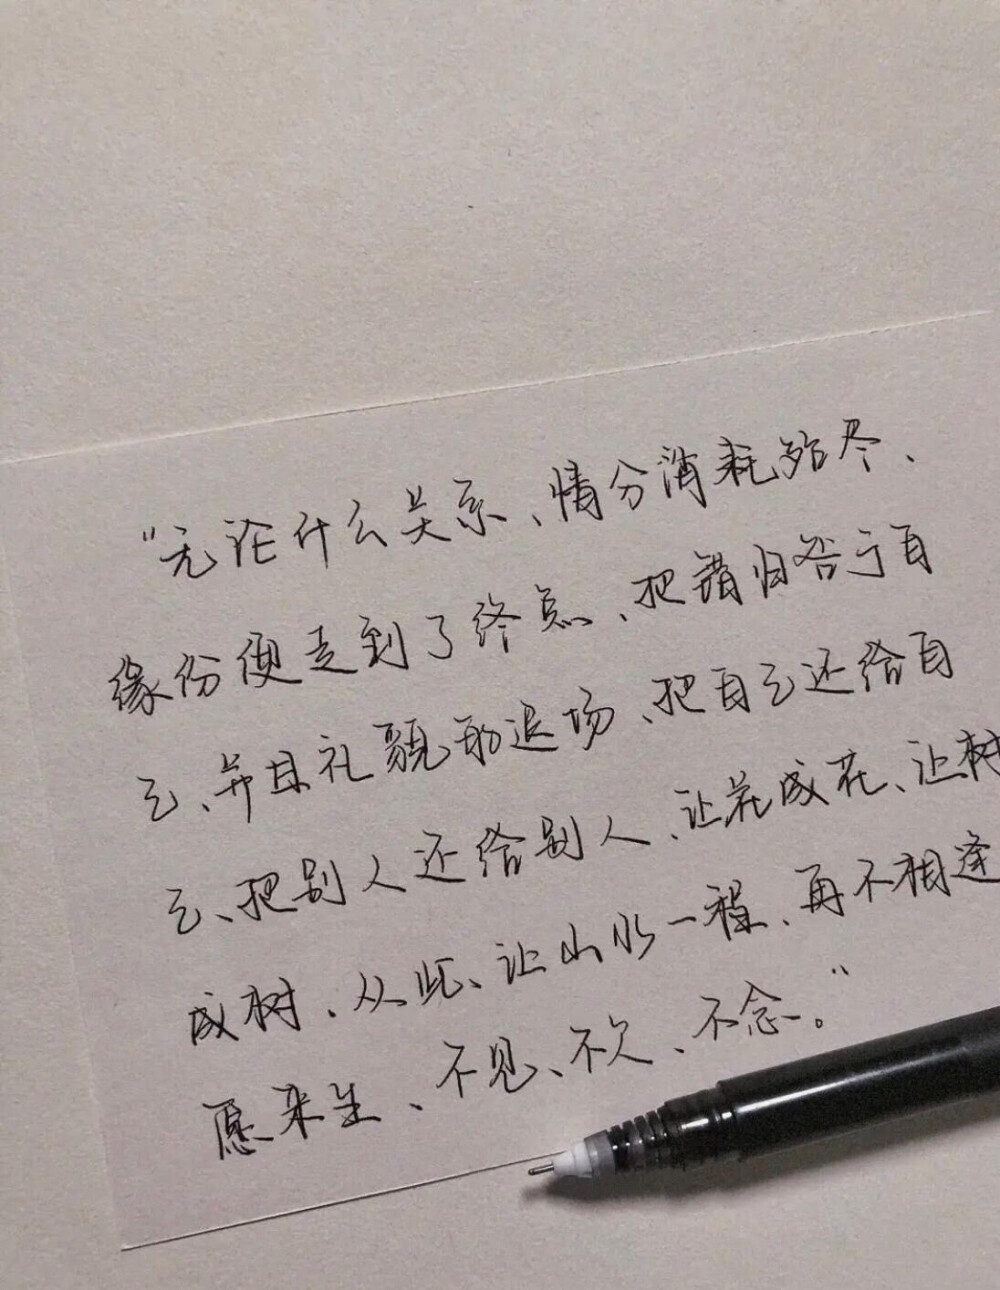 "无论什么关系、情分消耗殆尽、
缘份便走到了终点、把错归咎于自
己、并且礼貌的退场、把自己还给自
己、把别人还给别人、让花成花、让树
成树、从此、让山水一程、再不相逢
愿来生、不见、不欠、不念。"